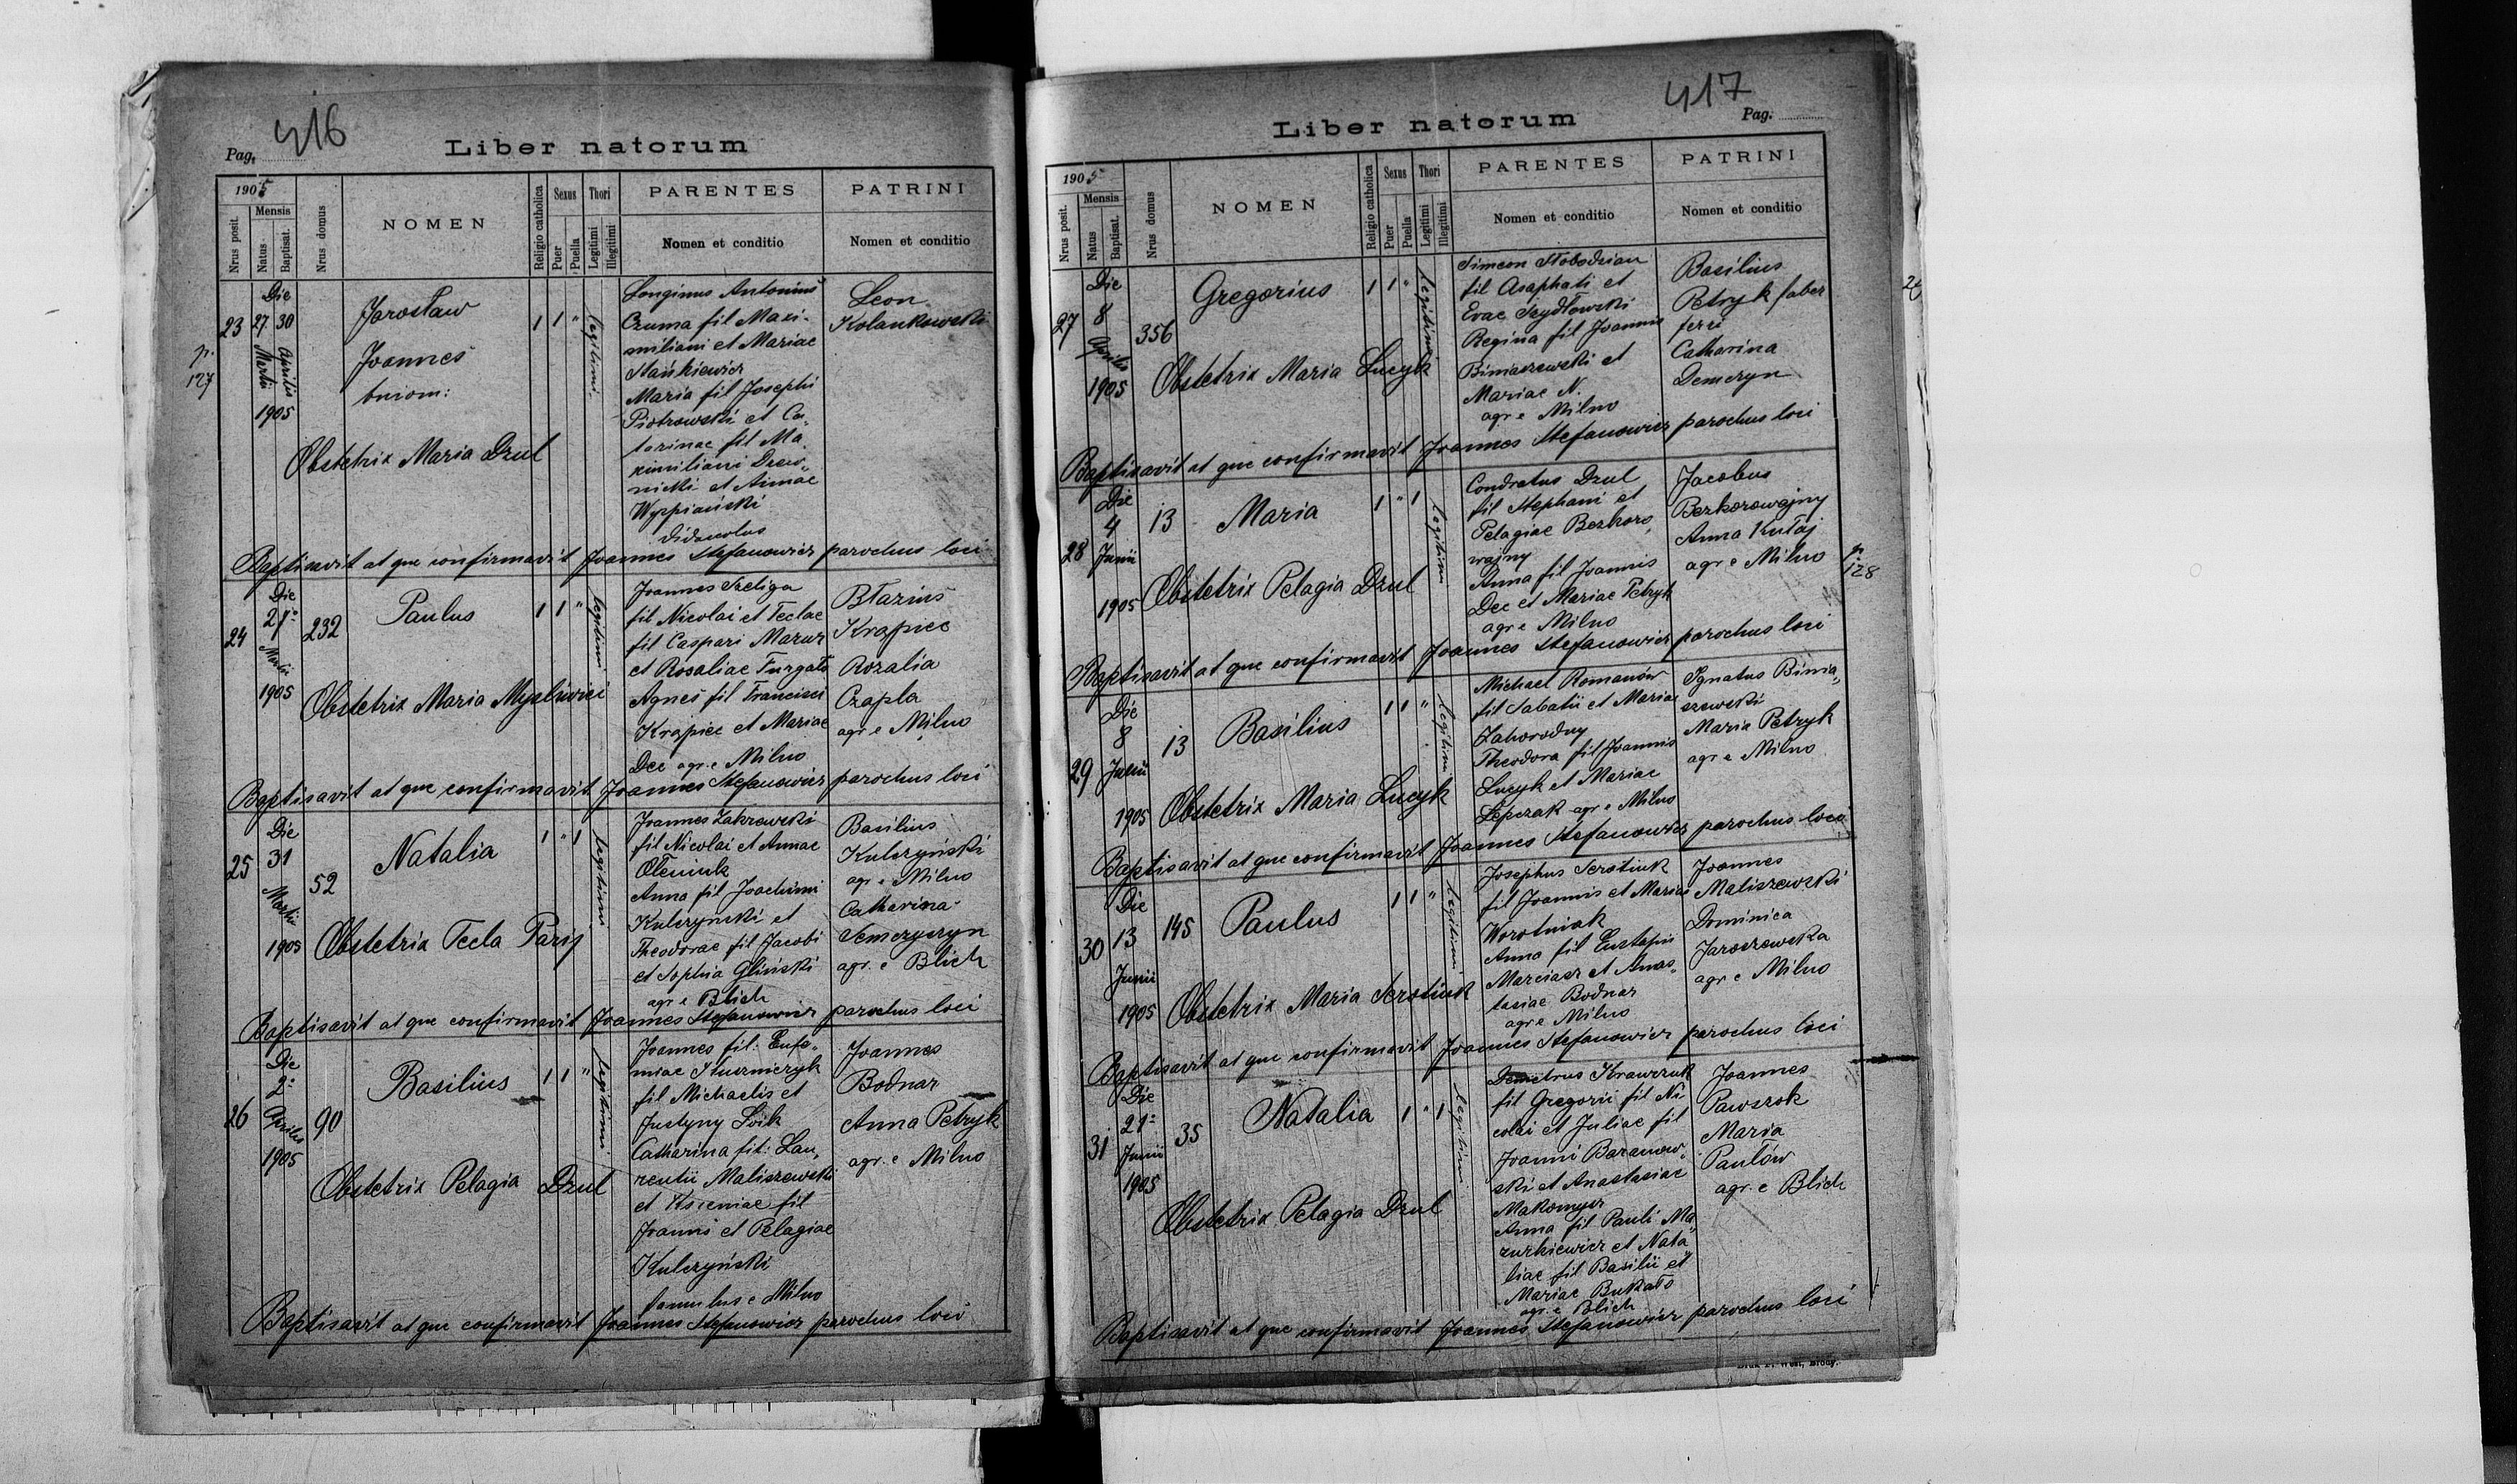 416
Pag.
Liber natorum
1905
Nrus posit.
Mensis
Natus
Baptisat.
Nrus domus
NOMEN
Religio catholica
Sexus
Puer
Puella
Thori
Legitimi
Illegitimi
PARENTES
Nomen et conditio
PATRINI
Nomen et conditio
p. 127
23
Die
27 30
Martii Aprilis
1905
Jarosław
Joannes
bniom:
1 1 "
legitimi
Longinus Antonius
Czuma fil Maxi-
miliani et Mariae
Stańkiewicz
Maria fil Josephi
Piotrowski et Ca-
tarinae fil Ma-
ximiliani Drew-
nicki et Annae
Wyspiański
Leon
Kolankowski
Obstetrix Maria Dzul
Baptisavit at que confirmavit Joannes Stefanowicz parochus loci
24
Die
27
Martii
1905
232
Paulus
1 1 "
legitimi
Joannes Szeliga
fil Nicolai et Teclae
fil Caspari Mazur
et Rosaliae Furgało
Agnes fil Francisci
Krąpiec et Mariae
Dec agr e Milno
Błazius
Krąpiec
Rozalia
Czapla
agr e Milno
Obstetrix Maria Myslewici
Baptisavit at que confirmavit Joannes Stefanowicz parochus loci
25
Die
31
Martii
1905
52
Natalia
1 " 1
legitimi
Joannes Zakrzewski
fil Nicolai et Annae
Oleniuk
Anna fil Joachimi
Kulczyński et
Theodorae fil Jacobi
et Sophia Gliński
agr e Blich
Basilius
Kulczyński
agr e Milno
Catharina
Semeryczyn
agr. e Blich
Obstetrix Tecla Paryj
Baptisavit at que confirmavit Joannes Stefanowicz parochus loci
26
Die
2
Aprilis
1905
90
Basilius
1 1 "
legitimi
Joannes fil: Eufe-
miae
fil Michaelis et
Justyny Soik
Catharina fil: Lau-
rentii Maliszewski
et Kseniae fil
Joannis et Pelagiae
Kulczyński
famulus e Milno
Joannes
Bodnar
Anna Petryk
agr. e Milno
Obstetrix Pelagia Dzul
Baptisavit at que confirmavit Joannes Stefanowicz parochus loci
417
Pag.
Liber natorum
1905
Nrus posit.
Mensis
Natus
Baptisat.
Nrus domus
NOMEN
Religio catholica
Sexus
Puer
Puella
Thori
Legitimi
Illegitimi
PARENTES
Nomen et conditio
PATRINI
Nomen et conditio
27
Die
8
Aprilis
1905
356
Gregorius
1 1 "
legitimi
Simeon Słobodzian
fil Asaphati et
Evae Szydłowski
Regina fil Joannis
Biniaszewski et
Mariae N.
agr e Milno
Basilius
Petryk faber
ferri
Catharina
Demczyn
Obstetrix Maria Lucyk
Baptisavit at que confirmavit Joannes Stefanowicz parochus loci
28
Die
4
Junii
1905
13
Maria
1 " 1
legitimi
Condratus Dzul
fil Stephani et
Pelagiae Bezkoro-
wajny
Anna fil Joannis
Dec et Mariae Petryk
agr e Milno
Jacobus
Bezkorowajny
Anna Kułaj
agr e Milno
p. 128
Obstetrix Pelagia Dzul
Baptisavit at que confirmavit Joannes Stefanowicz parochus loci
29
Die
8
Junii
1905
13
Basilius
1 1 "
legitimi
Michael Romanów
fil Sabatii et Mariae
Zahorodny
Theodora fil Joannis
Lucyk et Mariae
Łepczak agr e Milno
Ignatus Binia-
szewski
Maria Petryk
agr e Milno
Obstetrix Maria Lucyk
Baptisavit at que confirmavit Joannes Stefanowicz parochus loci
30
Die
13
Junii
1905
145
Paulus
1 1 "
legitimi
Josephus Serotiuk
fil Joannis et Mariae
Worotniak
Anna fil Eustafii
Marciasz et Anas-
tasiae Bodnar
agr e Milno
Joannes
Maliszewski
Dominica
Jaroszewska
agr e Milno
Obstetrix Maria Serotiuk
Baptisavit at que confirmavit Joannes Stefanowicz parochus loci
31
Die
21
Junii
1905
35
Natalia
1 " 1
legitimi
Demetrus Krawczuk
fil Gregorii fil Ni
colai et Juliae fil
Joanni Baranow-
ski et Anastasiae
Makomyr
Anna fil Pauli Ma-
zurkiewicz et Nata-
liae fil Basilii et
Mariae Bukało
agr. e Blich
Joannes
Pawszok
Maria
Pawłów
agr. e Blich
Obstetrix Pelagia Dzul
Baptisavit at que confirmavit Joannes Stefanowicz parochus loci